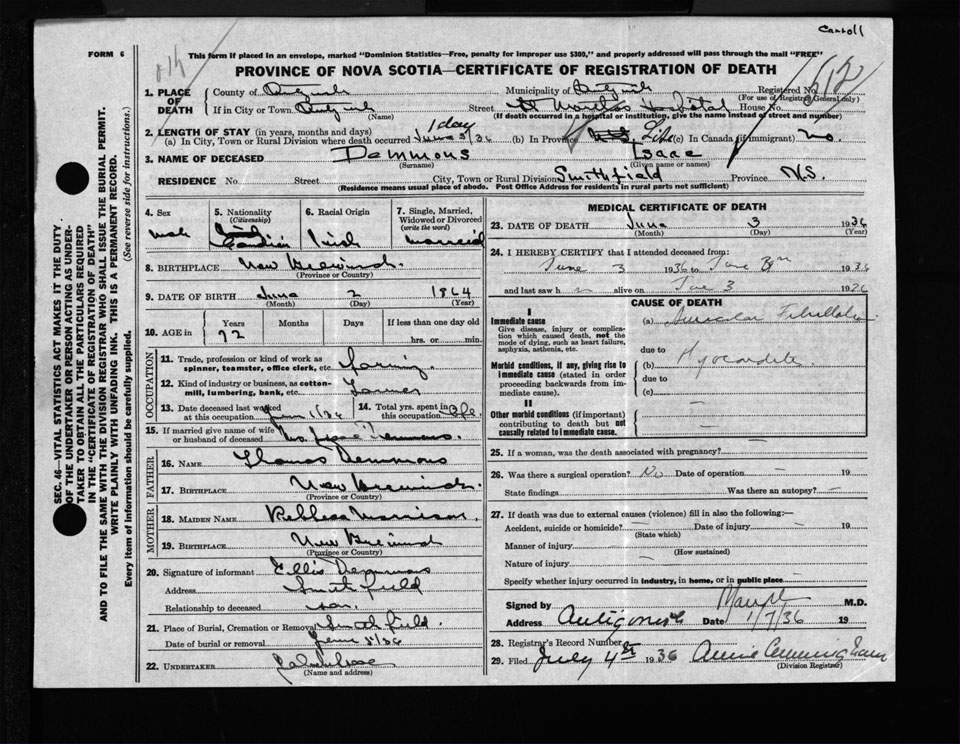 Carroll
FORM 6
This form if placed in an envelope, marked "Dominion Statistics—Free, penalty for improper use $300," and properly addressed will pass through the mail "FREE"
PROVINCE OF NOVA SCOTIA—CERTIFICATE OF REGISTRATION OF DEATH
612
SEC. 46—VITAL STATISTICS ACT MAKES IT THE DUTY
OF THE UNDERTAKER OR PERSON ACTING AS UNDER-
TAKER TO OBTAIN ALL THE PARTICULARS REQUIRED
IN THE "CERTIFICATE OF REGISTRATION OF DEATH"
AND TO FILE THE SAME WITH THE DIVISION REGISTRAR WHO SHALL ISSUE THE BURIAL PERMIT.
WRITE PLAINLY WITH UNFADING INK. THIS IS A PERMANENT RECORD.
Every item of information should be carefully supplied. (See reverse side for instructions.)
1. PLACE OF DEATH
County of Antigonish Municipality of Antigonish Registered No.
(For use of Registrar General only)
If in City or Town Antigonish Street St Marthas Hospital House No.
(Name) (If death occurred in a hospital or institution, give the name instead of street and number)
2. LENGTH OF STAY (in years, months and days) 1 day
(a) In City, Town or Rural Division where death occurred June 3/36 (b) In Province Life (c) In Canada (if immigrant) no.
3. NAME OF DECEASED Demmons Isaac
(Surname) (Given name or names)
RESIDENCE No. Street City, Town or Rural Division Smithfield Province N.S.
(Residence means usual place of abode. Post Office Address for residents in rural parts not sufficient)
4. Sex male
5. Nationality (Citizenship) Canadian
6. Racial Origin Irish
7. Single, Married, Widowed or Divorced (write the word) married
8. BIRTHPLACE New Brunswick.
(Province or Country)
9. DATE OF BIRTH June 2 1864
(Month) (Day) (Year)
10. AGE in Years Months Days If less than one day old
72 hrs. or min.
OCCUPATION
11. Trade, profession or kind of work as spinner, teamster, office clerk, etc. farming
12. Kind of industry or business, as cotton-mill, lumbering, bank, etc. Farmer
13. Date deceased last worked at this occupation June 1/36
14. Total yrs. spent in this occupation Life
15. If married give name of wife or husband of deceased Mrs. Isaac Demmons.
FATHER
16. NAME Thomas Demmons
17. BIRTHPLACE New Brunswick.
(Province or Country)
MOTHER
18. MAIDEN NAME Rebbeca Morrison.
19. BIRTHPLACE New Brunswick
(Province or Country)
20. Signature of informant Ellis Demmons
Address Smithfield
Relationship to deceased son.
21. Place of Burial, Cremation or Removal Smithfield.
Date of burial or removal June 5/36
22. UNDERTAKER
(Name and address)
MEDICAL CERTIFICATE OF DEATH
23. DATE OF DEATH June 3 1936
(Month) (Day) (Year)
24. I HEREBY CERTIFY that I attended deceased from:
June 3 1936 to June 3rd 1936
and last saw h alive on June 3 1936
CAUSE OF DEATH
I
Immediate cause
Give disease, injury or complication which caused death, not the mode of dying, such as heart failure, asphyxia, asthenia, etc.
(a) Auricular Fibrillation
due to
Morbid conditions, if any, giving rise to immediate cause (stated in order proceeding backwards from immediate cause).
(b) Myocarditis
due to
(c)
II
Other morbid conditions (if important) contributing to death but not causally related to immediate cause.
25. If a woman, was the death associated with pregnancy?
26. Was there a surgical operation? No Date of operation — 19
State findings Was there an autopsy?
27. If death was due to external causes (violence) fill in also the following:—
Accident, suicide or homicide? Date of injury 19
(State which)
Manner of injury
(How sustained)
Nature of injury
Specify whether injury occurred in industry, in home, or in public place
Signed by M.D.
Address Antigonish Date 1/7/36 19
28. Registrar's Record Number
29. Filed July 4th 1936 Annie Cunningham
(Division Registrar)